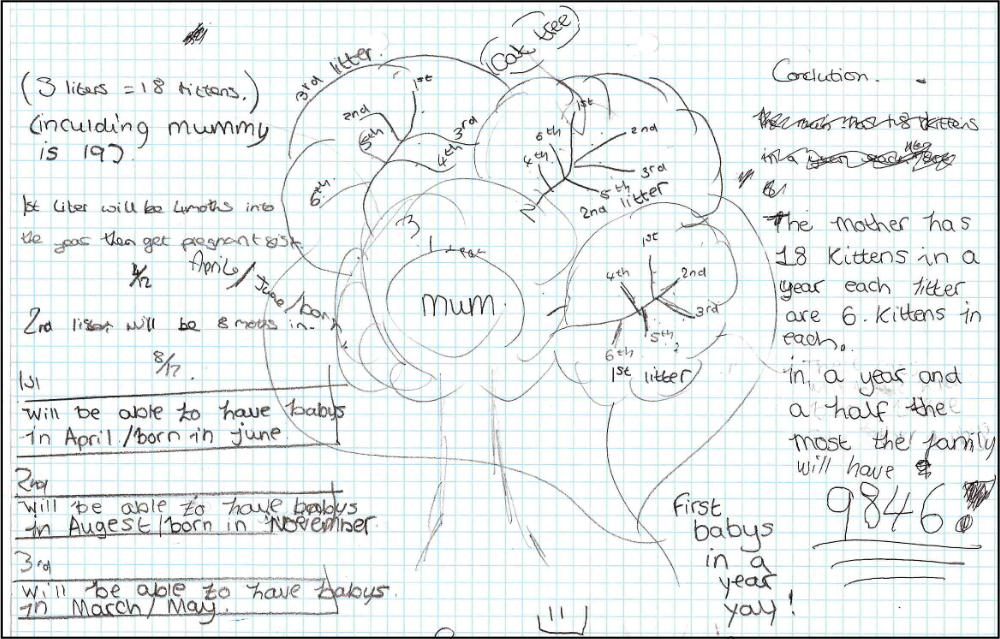 (3 liters = 18 kittens.)
(inculding mummy
is 19).
1st liter will be 4moths into
the year then get pregnant
4/12
April/June/born
2nd liter will be 8 moths in-
8/12.
1st
will be able to have babys
in April/born in june
2nd
will be able to have babys
in Augest/born in November
3rd
will be able to have babys.
in March/May.
Cat tree
3rd litter.
1st
2nd
3rd
4th
5th
6th
1st
2nd
3rd
4th
5th
6th
2nd litter
3
mum
1st
2nd
3rd
4th
5th
6th
1st litter
Conclution.
The mother has
18 kittens in a
year each litter
are 6. kittens in
each.
in a year and
a half the
most the family
will have
9846.
first
babys
in a
year
yay!